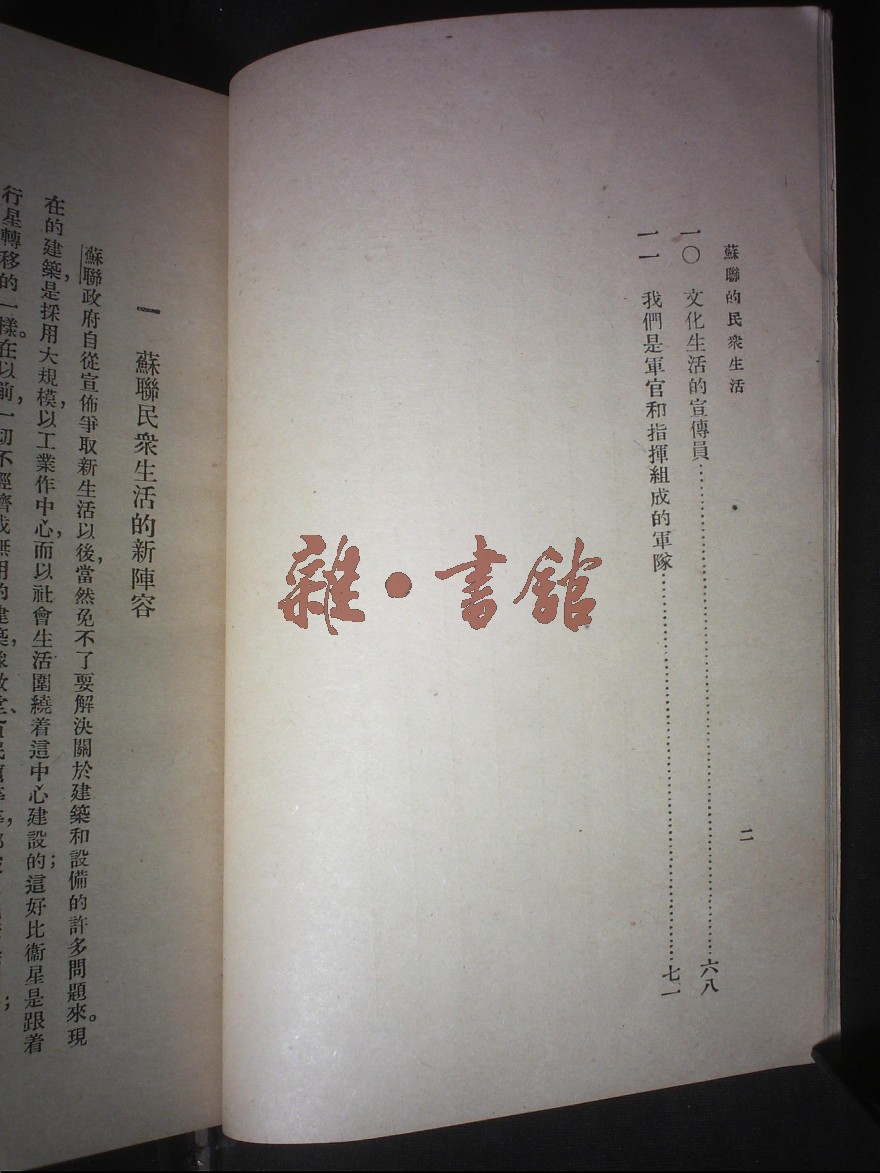 蘇聯的民衆生活
一〇 文化生活的宣傳員……六八
一一 我們是軍官和指揮組成的軍隊……七一
二
雜·書舘
一 蘇聯民衆生活的新陣容
蘇聯政府自從宣佈爭取新生活以後,當然免不了要解決關於建築和設備的許多問題來。現
在的建築,是採用大規模,以工業作中心,而以社會生活圍繞着這中心建設的;這好比衞星是跟着
行星轉移的一樣。在以前,一切不經濟或無用的建築,